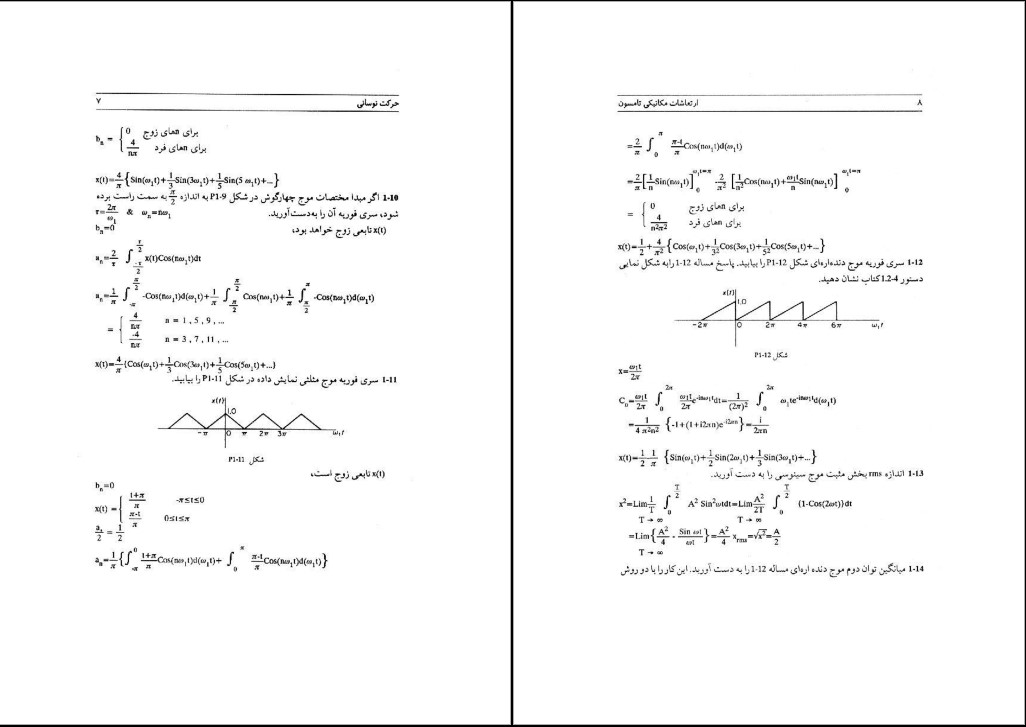 حرکت نوسانی ۷
b_n = { 0 برای nهای زوج
4/nπ برای nهای فرد
x(t)=4/π {Sin(ω₁t)+1/3 Sin(3ω₁t)+1/5 Sin(5 ω₁t)+...}
1-10 اگر مبدا مختصات موج چهارگوش در شکل P1-9 به اندازه π/2 به سمت راست برده
شود، سری فوریه آن را به‌دست‌آورید.
τ=2π/ω₁ & ω_n=nω₁
x(t) تابعی زوج خواهد بود،
b_n=0
a_n=2/τ ∫_{-τ/2}^{τ/2} x(t)Cos(nω₁t)dt
a_n=1/π ∫_{-π}^{π/2} -Cos(nω₁t)d(ω₁t)+1/π ∫_{-π/2}^{π/2} Cos(nω₁t)+1/π ∫_{π/2}^{π} -Cos(nω₁t)d(ω₁t)
= { 4/nπ n = 1 , 5 , 9 , ...
-4/nπ n = 3 , 7 , 11 , ...
x(t)=4/π {Cos(ω₁t)+1/3 Cos(3ω₁t)+1/5 Cos(5ω₁t)+...)
1-11 سری فوریه موج مثلثی نمایش داده در شکل P1-11 را بیابید.
x(t)
1,0
-π 0 π 2π 3π ω₁t
شکل P1-11
x(t) تابعی زوج است،
b_n=0
x(t) = { t+π/π -π≤t≤0
π-t/π 0≤t≤π
a₁/2 = 1/2
a_n=1/π {∫_{-π}^{0} t+π/π Cos(nω₁t)d(ω₁t)+ ∫_{0}^{π} π-t/π Cos(nω₁t)d(ω₁t)}
ارتعاشات مکانیکی تامسون ۸
=2/π ∫_{0}^{π} π-t/π Cos(nω₁t)d(ω₁t)
=2/π [1/n Sin(nω₁t)]_{0}^{ω₁t=π} - 2/π² [1/n² Cos(nω₁t)+ω₁t/n Sin(nω₁t)]_{0}^{ω₁t=π}
= { 0 برای nهای زوج
4/n²π² برای nهای فرد
x(t)=1/2+4/π² {Cos(ω₁t)+1/3² Cos(3ω₁t)+1/5² Cos(5ω₁t)+...}
1-12 سری فوریه موج دنده‌اره‌ای شکل P1-12 را بیابید. پاسخ مساله 12-1 رابه شکل نمایی
دستور 4-1.2 کتاب نشان دهید.
x(t)
1,0
-2π 0 2π 4π 6π ω₁t
شکل P1-12
x=ω₁t/2π
C_n=ω₁t/2π ∫_{0}^{2π} ω₁t/2π e^{-inω₁t}dt=1/(2π)² ∫_{0}^{2π} ω₁te^{-inω₁t}d(ω₁t)
=1/4 π²n² {-1+(1+i2πn)e^{-i2πn}}=i/2πn
x(t)=1/2 - 1/π {Sin(ω₁t)+1/2 Sin(2ω₁t)+1/3 Sin(3ω₁t)+...}
1-13 اندازه rms بخش مثبت موج سینوسی را به دست آورید.
x²=Lim 1/T ∫_{0}^{T/2} A² Sin²ωtdt=Lim A²/2T ∫_{0}^{T/2} (1-Cos(2ωt))dt
T → ∞ T → ∞
=Lim{A²/4 - Sin ωt/ωt}=A²/4 x_rms=√x²=A/2
T → ∞
1-14 میانگین توان دوم موج دنده اره‌ای مساله 12-1 را به دست آورید. این‌کار را با دو روش